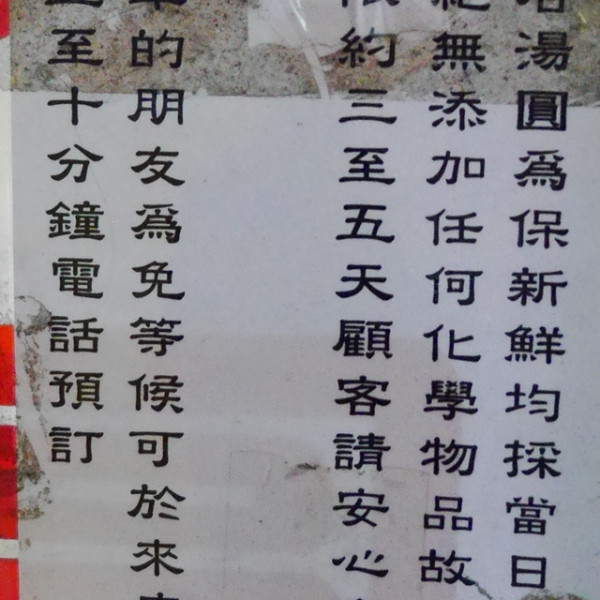 湯圓為保新鮮均採當日
無添加任何化學物品故
約三至五天顧客請安心
的朋友為免等候可於來
至十分鐘電話預訂